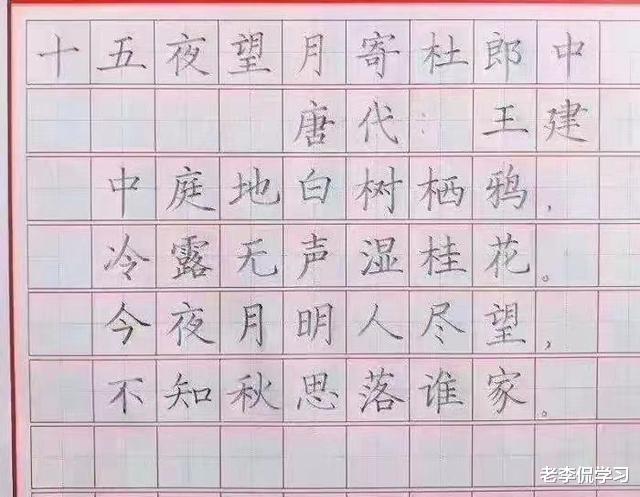 十五夜望月寄杜郎中
唐代：王建
中庭地白树栖鸦，
冷露无声湿桂花。
今夜月明人尽望，
不知秋思落谁家。
老李侃学习